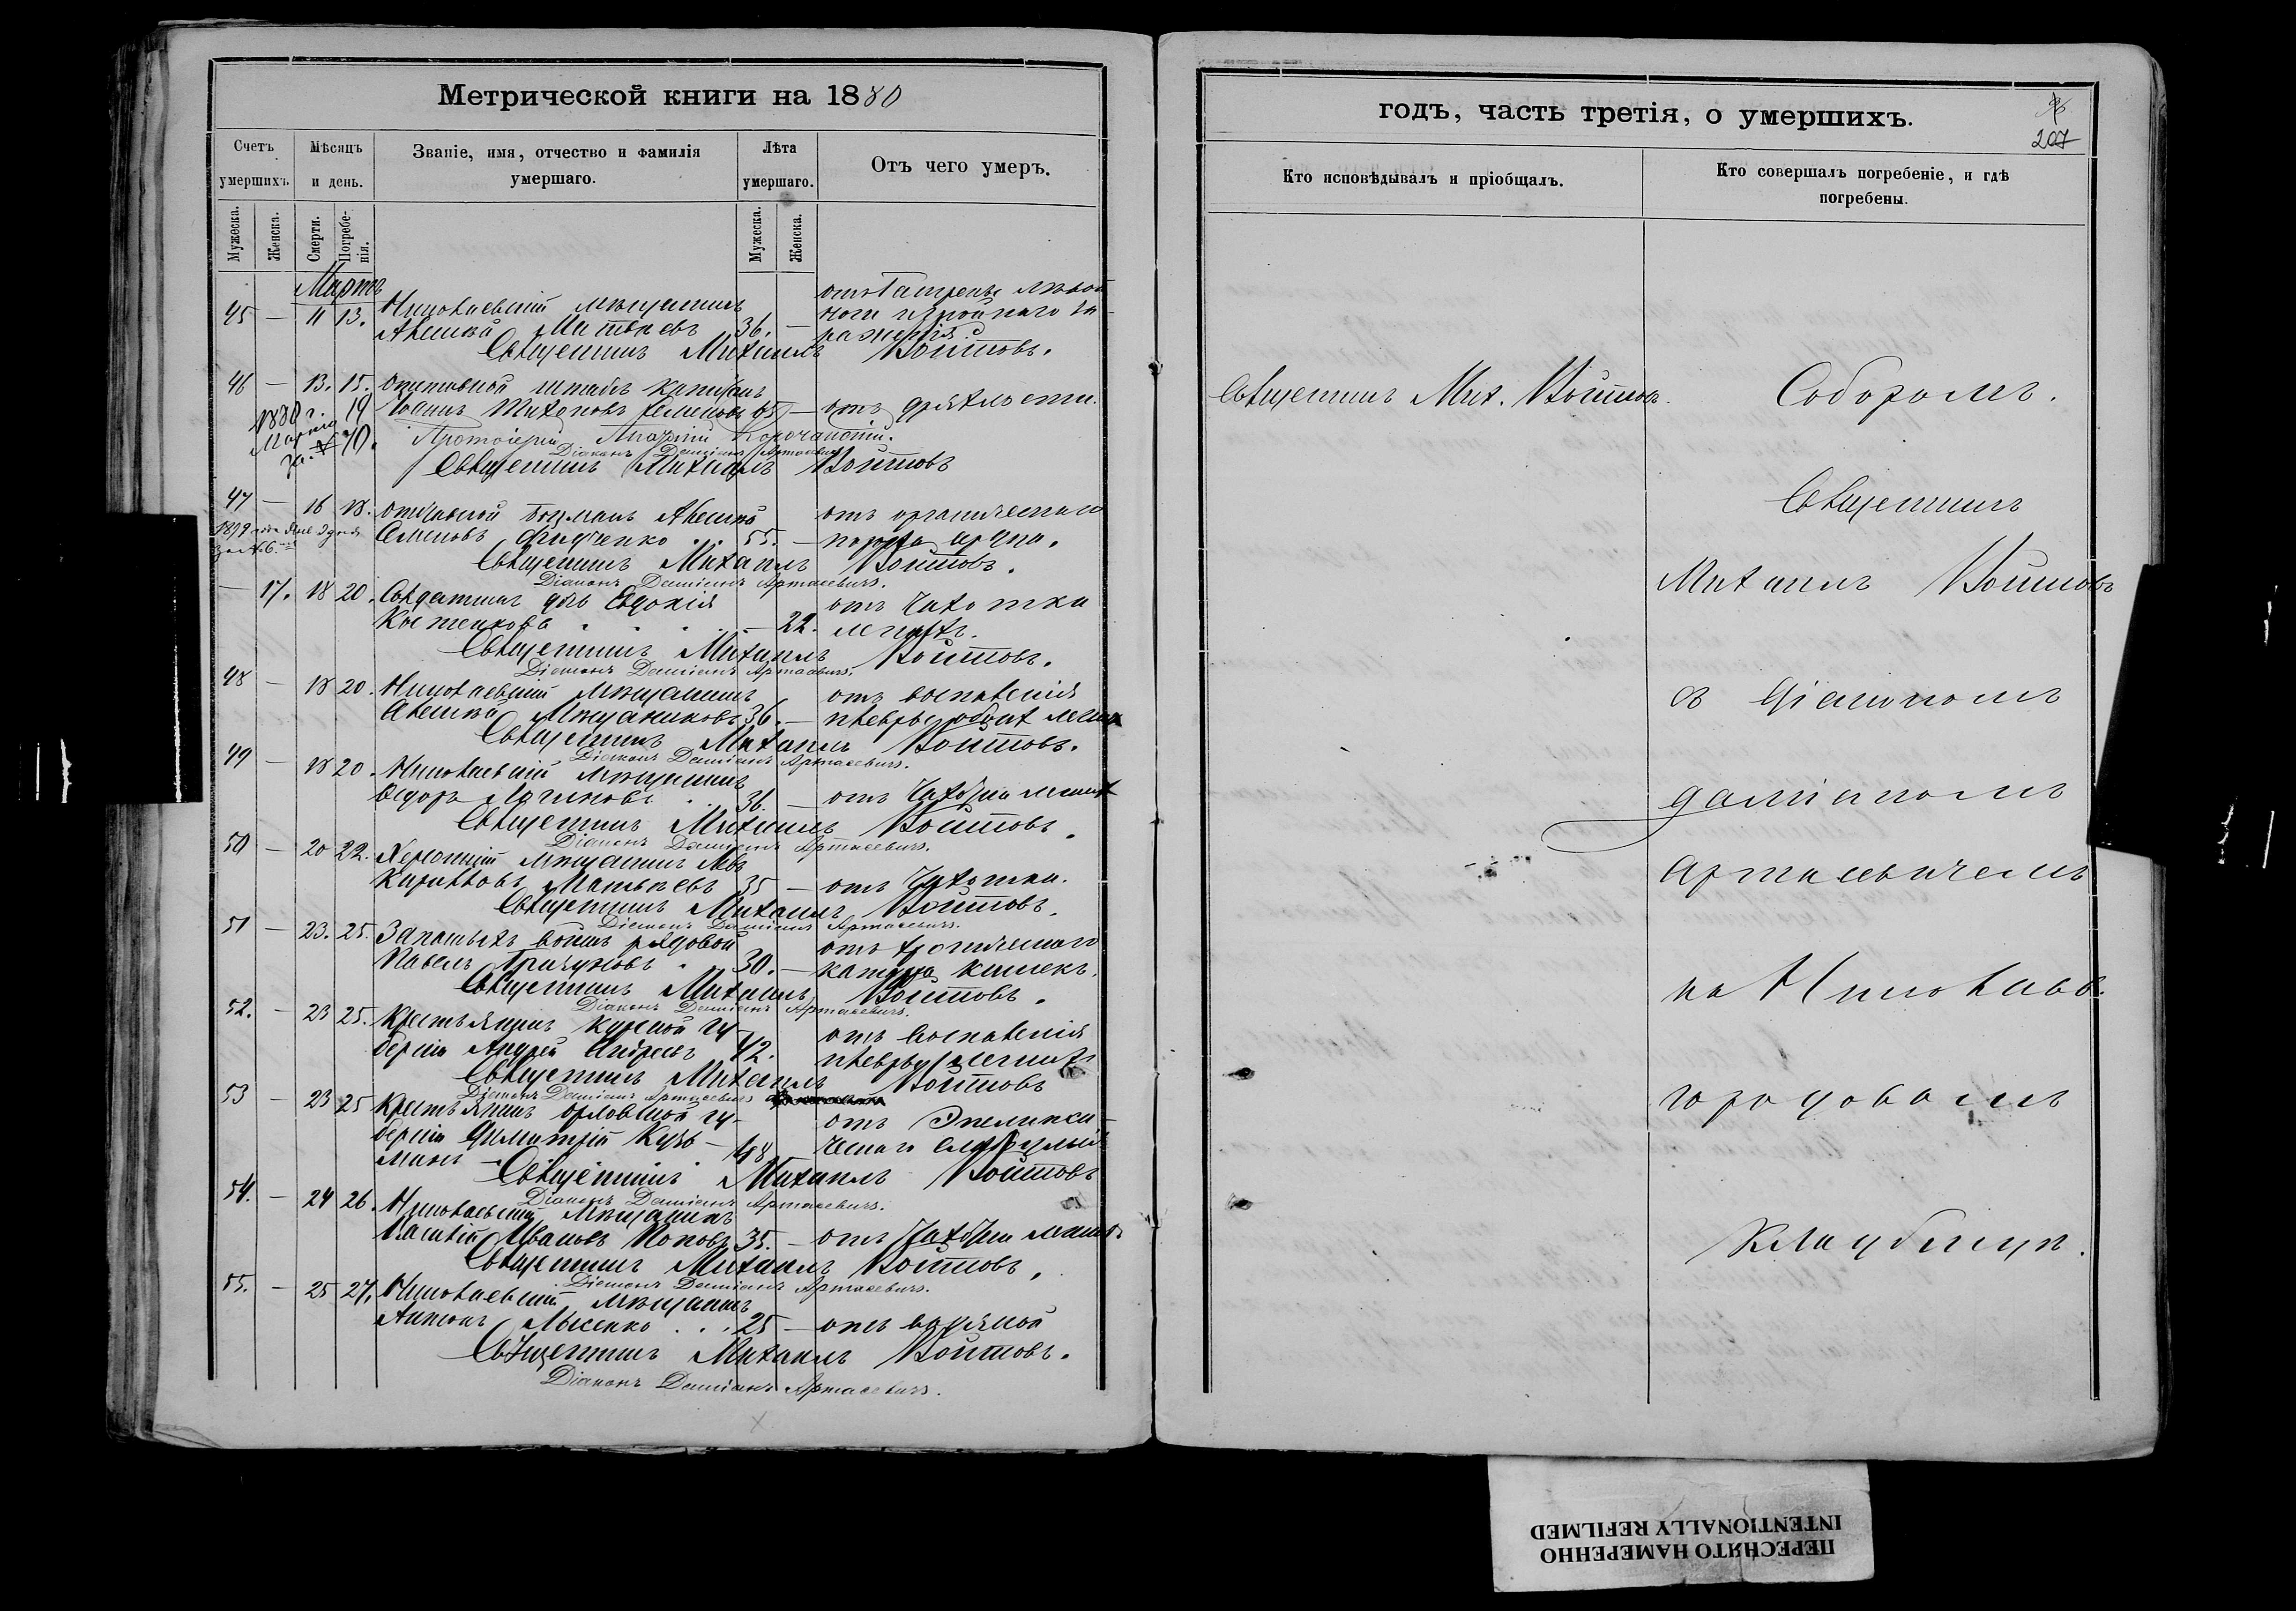 Метрической книги на 1880
Счетъ умершихъ.
Мѣсяцъ и день.
Званіе, имя, отчество и фамилія умершаго.
Лѣта умершаго.
Отъ чего умеръ.
Мужеска.
Женска.
Смерти.
Погребенія.
Мужеска.
Женска.
Мартъ
45 — 11 13. Николаевскій мѣщанинъ
Алексѣй Матвѣевъ 36. —
отъ Гангрены лѣвой
ноги и гнойнаго за-
раженія.
Священникъ Михаилъ Войтовъ.
46 — 13. 15. отставной штабсъ капитанъ
Іоаннъ Тихоновъ Семеновъ 65 — отъ дряхлости.
1880 г. 19
Марта
за № 70.
Протоіерей Корочанскій.
Діаконъ Даміанъ Артасевичъ
Священникъ Михаилъ Войтовъ
47 — 16 18. отставной боцманъ Алексѣй
Семеновъ 55. —
отъ органическаго
порока сердца.
1879
за № 6.
Священникъ Михаилъ Войтовъ.
Діаконъ Даміанъ Артасевичъ.
— 17. 18 20. Солдатская дочь Евдокія
Костенкова . . . — 22.
отъ чахотки
легкихъ.
Священникъ Михаилъ Войтовъ.
Діаконъ Даміанъ Артасевичъ.
48 — 18 20. Николаевскій мѣщанинъ
Алексѣй Мѣщаниновъ 36. —
отъ воспаленія
плевры обоихъ легкихъ
Священникъ Михаилъ Войтовъ.
Діаконъ Даміанъ Артасевичъ.
49 — 18 20. Николаевскій мѣщанинъ
Ѳедоръ Логиновъ . . 36. — отъ чахотки легкихъ
Священникъ Михаилъ Войтовъ.
Діаконъ Даміанъ Артасевичъ.
50 — 20 22. Херсонскій мѣщанинъ Левъ
Кирилловъ Матвѣевъ 35 — отъ чахотки.
Священникъ Михаилъ Войтовъ.
Діаконъ Даміанъ Артасевичъ.
51 — 23. 25. Запасныхъ войскъ рядовой
Павелъ Трикуновъ . 30. —
отъ хроническаго
катарра кишекъ.
Священникъ Михаилъ Войтовъ.
Діаконъ Даміанъ Артасевичъ.
52. — 23 25. Крестьянинъ Курской гу-
берніи Андрей Андреевъ 42.
отъ воспаленія
плевры легкихъ
Священникъ Михаилъ Войтовъ
Діаконъ Даміанъ Артасевичъ
53 — 23 25 Крестьянинъ Орловской гу-
берніи Димитрій Кузь-
минъ — 48
отъ Эпелипси-
ческаго
Священникъ Михаилъ Войтовъ
Діаконъ Даміанъ Артасевичъ.
54. — 24 26. Николаевскій Мѣщанинъ
Василій Ивановъ Поповъ 35. — отъ чахотки легкихъ
Священникъ Михаилъ Войтовъ.
Діаконъ Даміанъ Артасевичъ.
55. — 25 27. Николаевскій мѣщанинъ
Антонъ Лысенко . . . 25 — отъ водяной
Священникъ Михаилъ Войтовъ.
Діаконъ Даміанъ Артасевичъ.
годъ, часть третія, о умершихъ.
207
Кто исповѣдывалъ и пріобщалъ.
Кто совершалъ погребеніе, и гдѣ погребены.
Священникъ Мих. Войтовъ.
Соборомъ.
Священникъ
Михаилъ Войтовъ
съ Діакономъ
Даміаномъ
Артасевичемъ
на Николаев.
городовомъ
Кладбищѣ.
ПЕРЕСНЯТО НАМЕРЕННО
INTENTIONALLY REFILMED